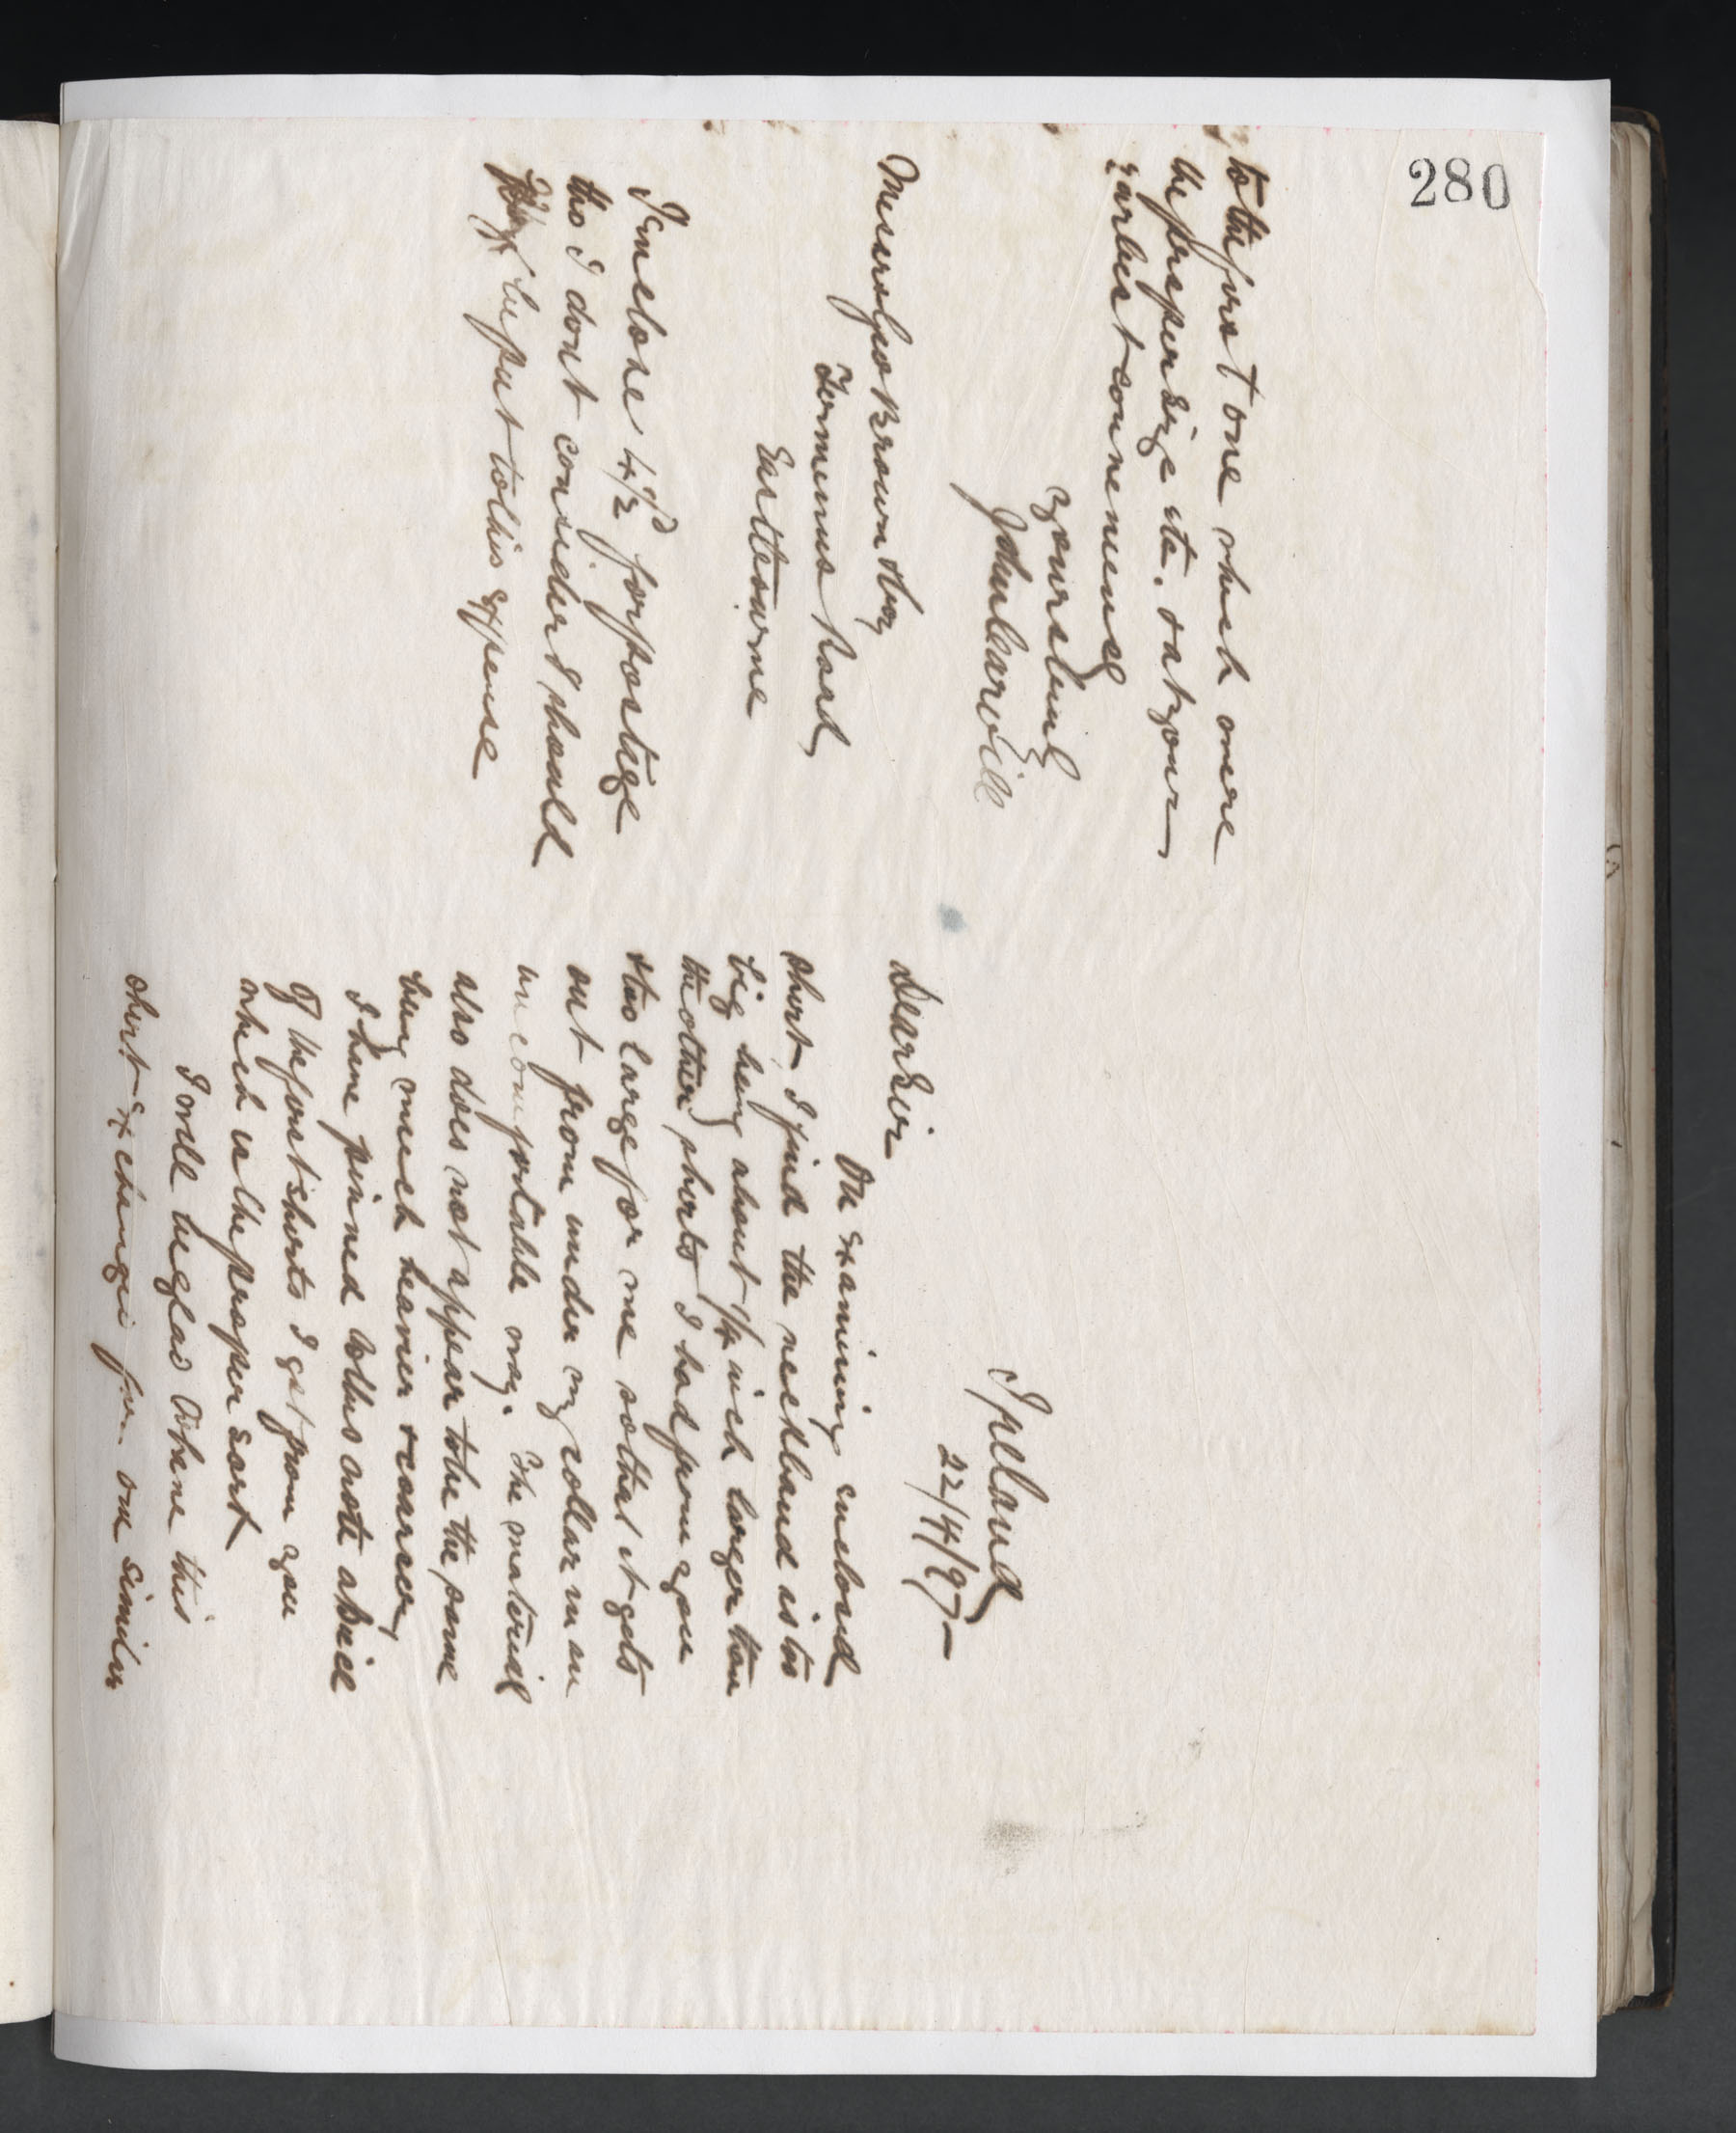 280
Ifield
22/4/97
Dear Sir
On examining enclosed
shirt I find the neckband is too
big being about 1/4 inch larger than
the other shirts I had from you
& too large for me so that it gets
out from under my collar in an
uncomfortable way. The material
also does not appear to be the same
being much heavier & coarser
I have pinned to this note a piece
of the first shirts I got from you
which is the proper sort
I will be glad to have this
shirt exchanged for one similar
to the first one which were
the proper size etc. at your
earliest convenience
yours truly
John
Messrs Geo Brown &
Terminus Road
Eastbourne
I enclose 4 1/2d for postage
tho I dont consider I should
be put to this expense